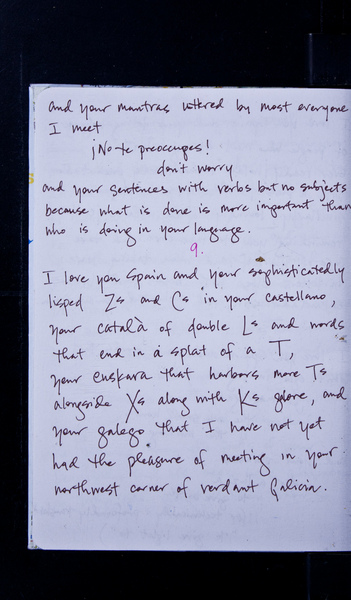 and your mantras uttered by most everyone
I meet
¡No te preocupes!
don't worry
and your sentences with verbs but no subjects
because what is done is more important than
who is doing in your language.
9.
I love you Spain and your sophisticatedly
lisped Zs and Cs in your castellano,
your català of double Ls and words
that end in a splat of a T,
your euskara that harbors more Ts
alongside Xs along with Ks galore, and
your galego that I have not yet
had the pleasure of meeting in your
northwest corner of verdant Galicia.